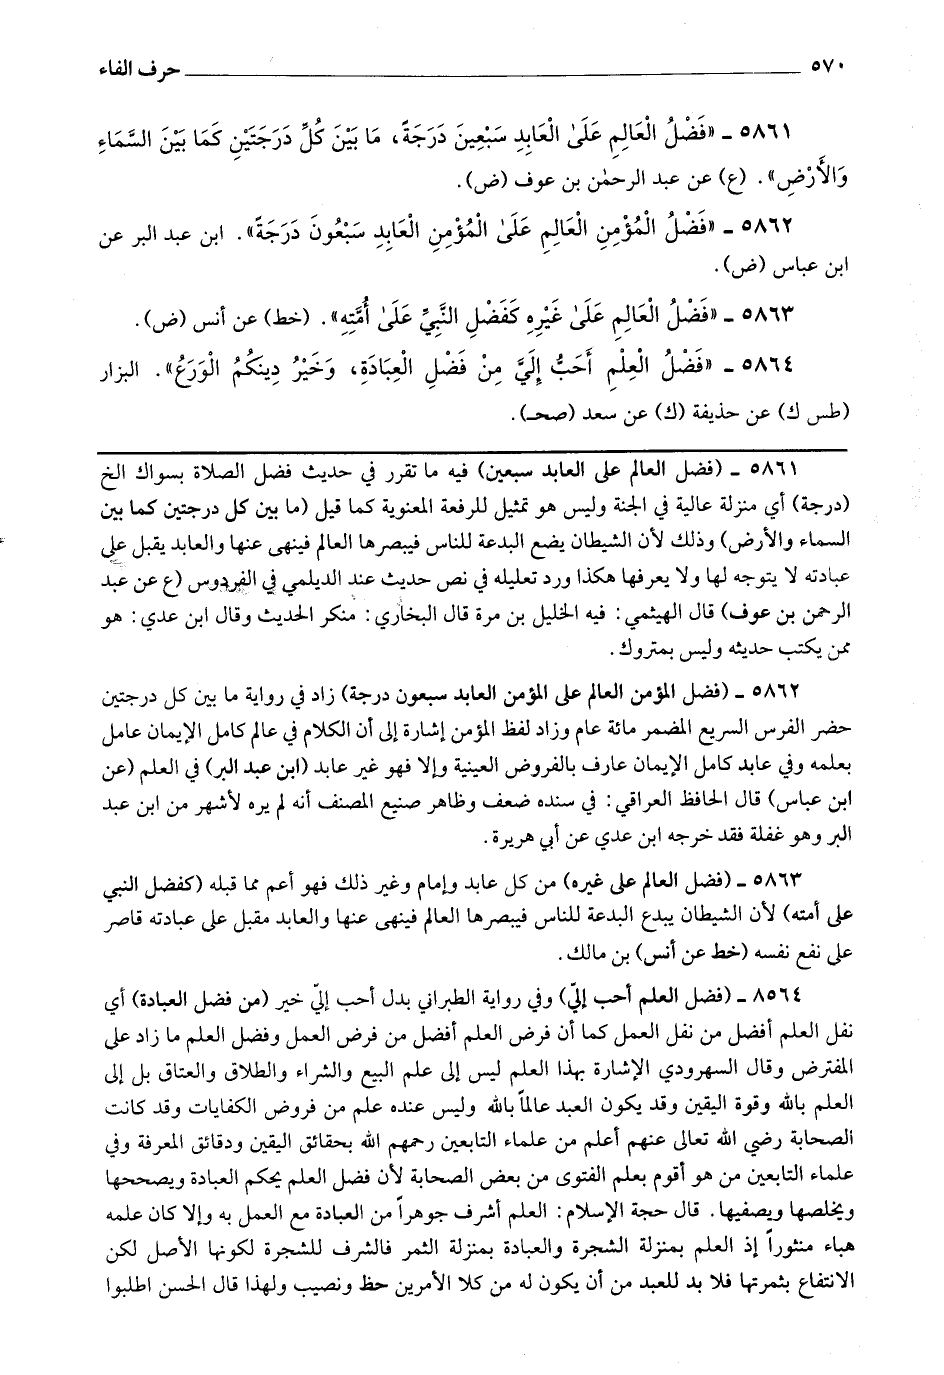 ٥٧٠ حرف الفاء
٥٨٦١ ـ «فَضْلُ الْعَالِمِ عَلَىٰ الْعَابِدِ سَبْعِينَ دَرَجَةً، مَا بَيْنَ كُلِّ دَرَجَتَيْنِ كَمَا بَيْنَ السَّمَاءِ
وَالأَرْضِ». (ع) عن عبد الرحمٰن بن عوف (ض).
٥٨٦٢ ـ «فَضْلُ الْمُؤْمِنِ الْعَالِمِ عَلَىٰ الْمُؤْمِنِ الْعَابِدِ سَبْعُونَ دَرَجَةً». ابن عبد البر عن
ابن عباس (ض).
٥٨٦٣ ـ «فَضْلُ الْعَالِمِ عَلَىٰ غَيْرِهِ كَفَضْلِ النَّبِيِّ عَلَىٰ أُمَّتِهِ». (خط) عن أنس (ض).
٥٨٦٤ ـ «فَضْلُ الْعِلْمِ أَحَبُّ إِلَيَّ مِنْ فَضْلِ الْعِبَادَةِ، وَخَيْرُ دِينِكُمُ الْوَرَعُ». البزار
(طس ك) عن حذيفة (ك) عن سعد (صحـ).
٥٨٦١ ـ (فضل العالم على العابد سبعين) فيه ما تقرر في حديث فضل الصلاة بسواك الخ
(درجة) أي منزلة عالية في الجنة وليس هو تمثيل للرفعة المعنوية كما قيل (ما بين كل درجتين كما بين
السماء والأرض) وذلك لأن الشيطان يضع البدعة للناس فيبصرها العالم فينهى عنها والعابد يقبل على
عبادته لا يتوجه لها ولا يعرفها هكذا ورد تعليله في نص حديث عند الديلمي في الفردوس (ع عن عبد
الرحمن بن عوف) قال الهيثمي: فيه الخليل بن مرة قال البخاري: منكر الحديث وقال ابن عدي: هو
ممن يكتب حديثه وليس بمتروك.
٥٨٦٢ ـ (فضل المؤمن العالم على المؤمن العابد سبعون درجة) زاد في رواية ما بين كل درجتين
حضر الفرس السريع المضمر مائة عام وزاد لفظ المؤمن إشارة إلى أن الكلام في عالم كامل الإيمان عامل
بعلمه وفي عابد كامل الإيمان عارف بالفروض العينية وإلا فهو غير عابد (ابن عبد البر) في العلم (عن
ابن عباس) قال الحافظ العراقي: في سنده ضعف وظاهر صنيع المصنف أنه لم يره لأشهر من ابن عبد
البر وهو غفلة فقد خرجه ابن عدي عن أبي هريرة.
٥٨٦٣ ـ (فضل العالم على غيره) من كل عابد وإمام وغير ذلك فهو أعم مما قبله (كفضل النبي
على أمته) لأن الشيطان يبدع البدعة للناس فيبصرها العالم فينهى عنها والعابد مقبل على عبادته قاصر
على نفع نفسه (خط عن أنس) بن مالك.
٨٥٦٤ ـ (فضل العلم أحب إليّ) وفي رواية الطبراني بدل أحب إليّ خير (من فضل العبادة) أي
نفل العلم أفضل من نفل العمل كما أن فرض العلم أفضل من فرض العمل وفضل العلم ما زاد على
المفترض وقال السهرودي الإشارة بهذا العلم ليس إلى علم البيع والشراء والطلاق والعتاق بل إلى
العلم بالله وقوة اليقين وقد يكون العبد عالماً بالله وليس عنده علم من فروض الكفايات وقد كانت
الصحابة رضي الله تعالى عنهم أعلم من علماء التابعين رحمهم الله بحقائق اليقين ودقائق المعرفة وفي
علماء التابعين من هو أقوم بعلم الفتوى من بعض الصحابة لأن فضل العلم يحكم العبادة ويصححها
ويخلصها ويصفيها. قال حجة الإسلام: العلم أشرف جوهراً من العبادة مع العمل به وإلا كان علمه
هباء منثوراً إذ العلم بمنزلة الشجرة والعبادة بمنزلة الثمر فالشرف للشجرة لكونها الأصل لكن
الانتفاع بثمرتها فلا بد للعبد من أن يكون له من كلا الأمرين حظ ونصيب ولهذا قال الحسن اطلبوا